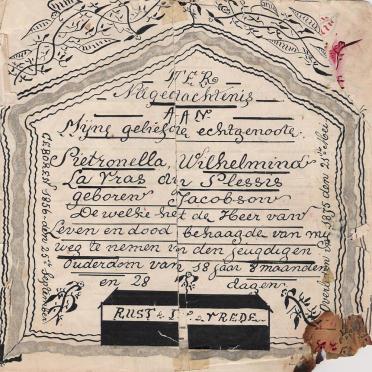 TER
Nagedachtenis
AAN
Mijne geliefde echtgenoote.
Pietronella Wilhelmina
La Gras du Plessis
geboren Jacobson
De welke het de Heer van
Leven en dood behaagde van mij
weg te nemen in den jeugdigen
Ouderdom van 18 jaar 8 maanden
en 28 dagen
RUST IN VREDE
GEBOREN 1856 den 25ste September
Overleden 1875 den 21ste Mei